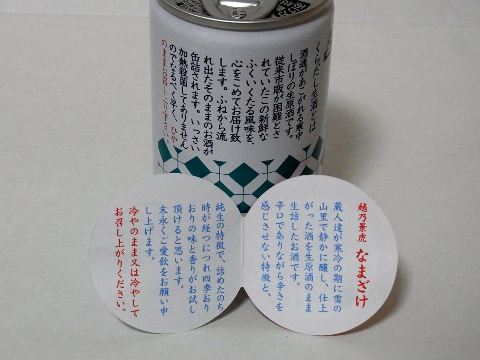 くらだし生酒とは
酒通があこがれる寒中
しぼりの生原酒です。
従来市販が困難とさ
れていたこの新鮮な
ふくいくたる風味を、
心をこめてお届け致
します。ふねから流
れ出たそのままのお酒が
缶詰されます。いっさい
加熱殺菌してありません
のでなるべく早く、ひや
のままお召し上り下さい。
越乃景虎 なまざけ
蔵人達が寒冷の期に雪の
山里で静かに醸し、仕上
がった酒を生原酒のまま
生詰したお酒です。
辛口でありながら辛さを
感じさせない特徴と、
純生の特徴で、詰めたのち
時が経つにつれ四季おり
おりの味と香りがお試し
頂けると思います。
末永くご愛飲をお願い申
し上げます。
冷やのまま又は冷やして
お召し上がりください。